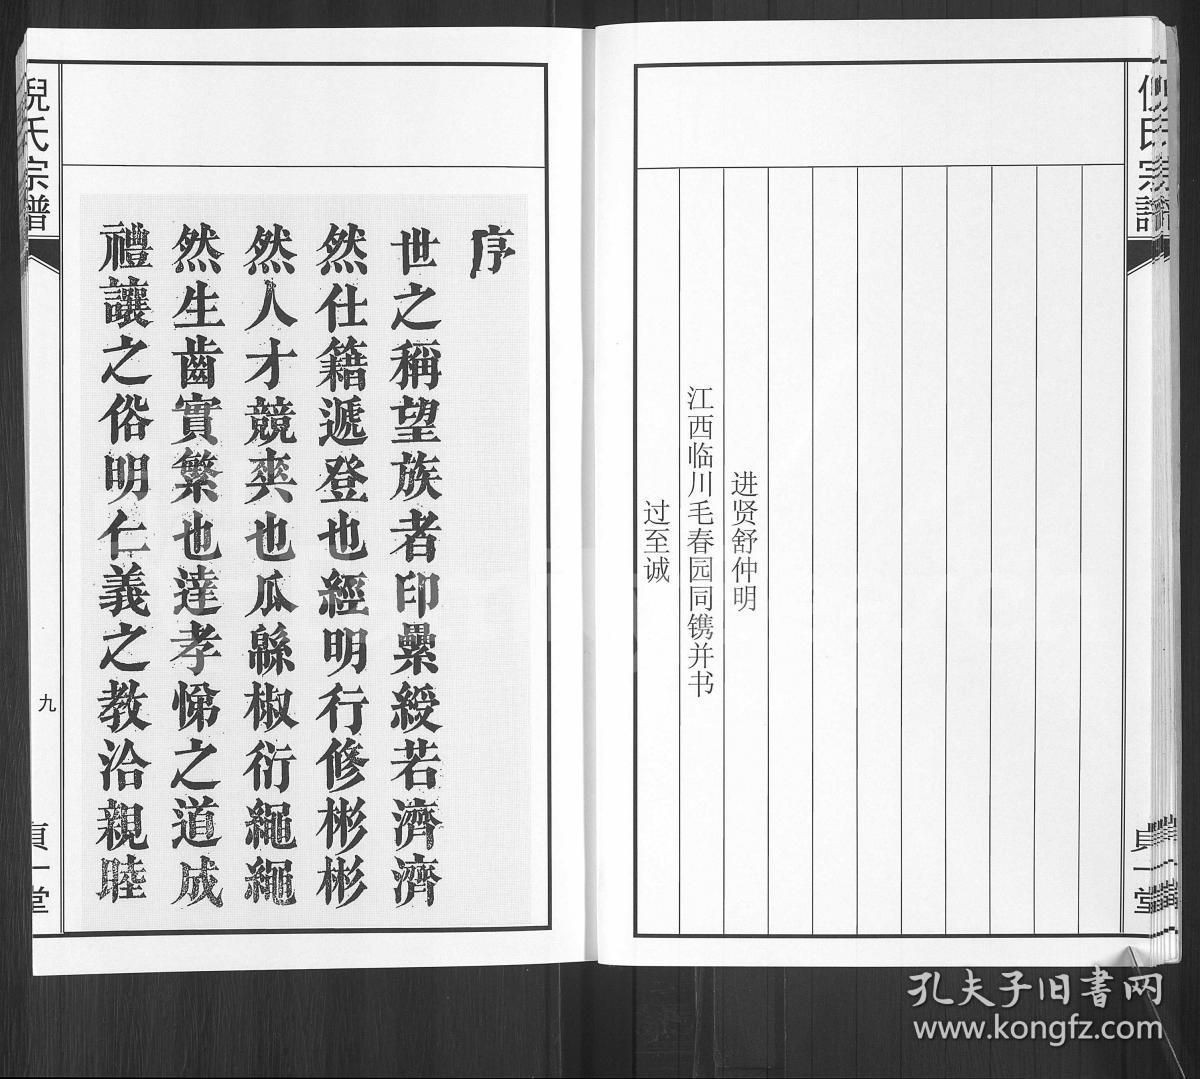 倪氏宗譜
貞一堂
过至诚
江西临川毛春园同镌并书
进贤舒仲明
序
世之稱望族者印纍綬若濟濟
然仕籍遞登也經明行修彬彬
然人才競爽也瓜緜椒衍繩繩
然生齒實繁也達孝悌之道成
禮讓之俗明仁義之教洽親睦
倪氏宗譜
九
貞一堂
孔夫子旧书网
www.kongfz.com